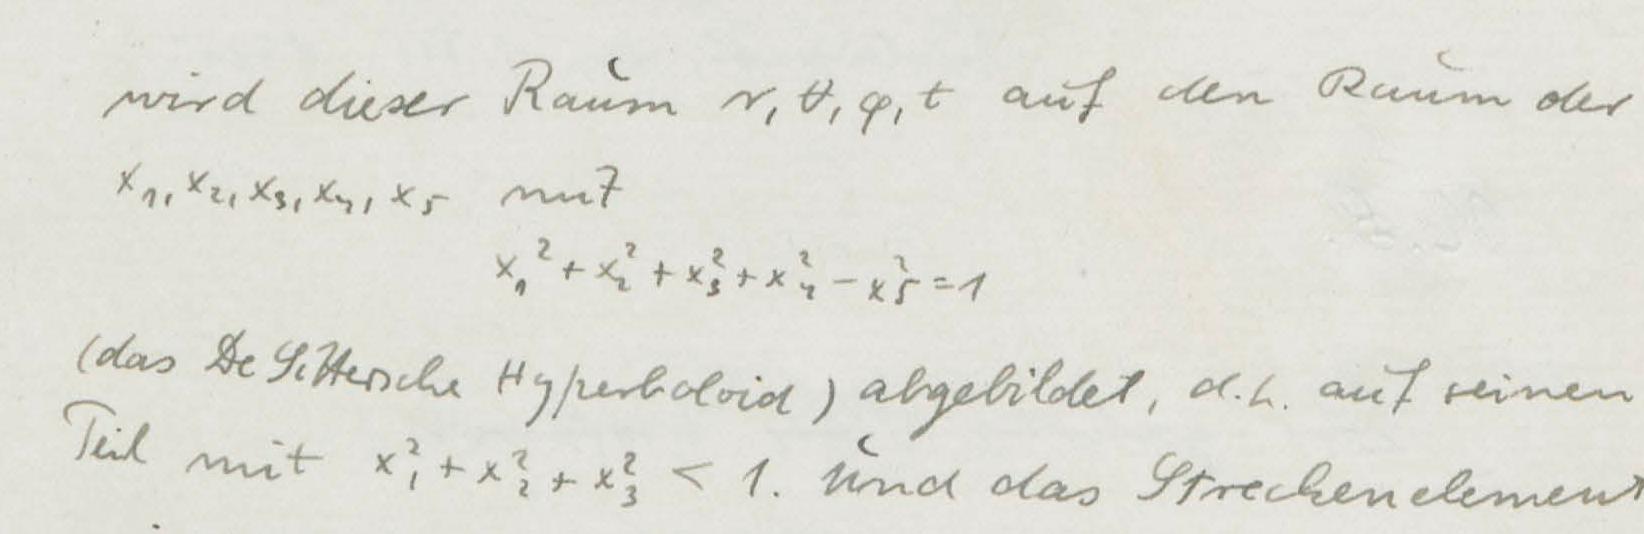 wird dieser Raum r, ϑ, φ, t auf den Raum der
x₁, x₂, x₃, x₄, x₅ mit
x₁² + x₂² + x₃² + x₄² − x₅² = 1
(das De Sittersche Hyperboloid) abgebildet, d.h. auf seinen
Teil mit x₁² + x₂² + x₃² < 1. Und das Streckenelement